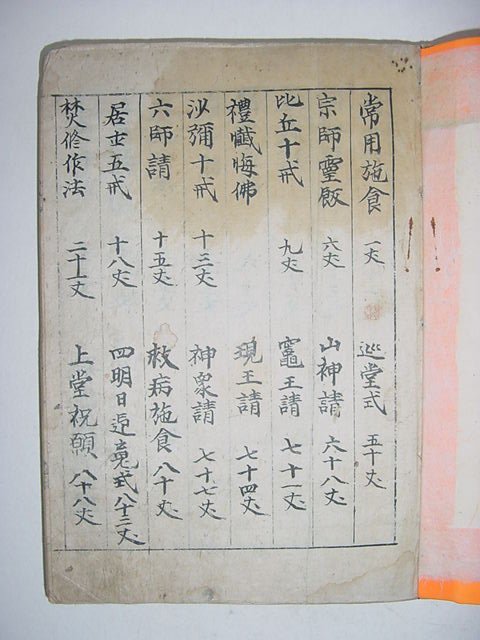 常用施食 一丈 巡堂式 五十丈
宗師靈飯 六丈 山神請 六十八丈
比丘十戒 九丈 竈王請 七十一丈
禮懺悔佛 現王請 七十四丈
沙彌十戒 十三丈 神衆請 七十七丈
六師請 十五丈 救病施食 八十丈
居士五戒 十八丈 四明日迎魂式 八十二丈
焚修作法 二十一丈 上堂祝願 八十八丈